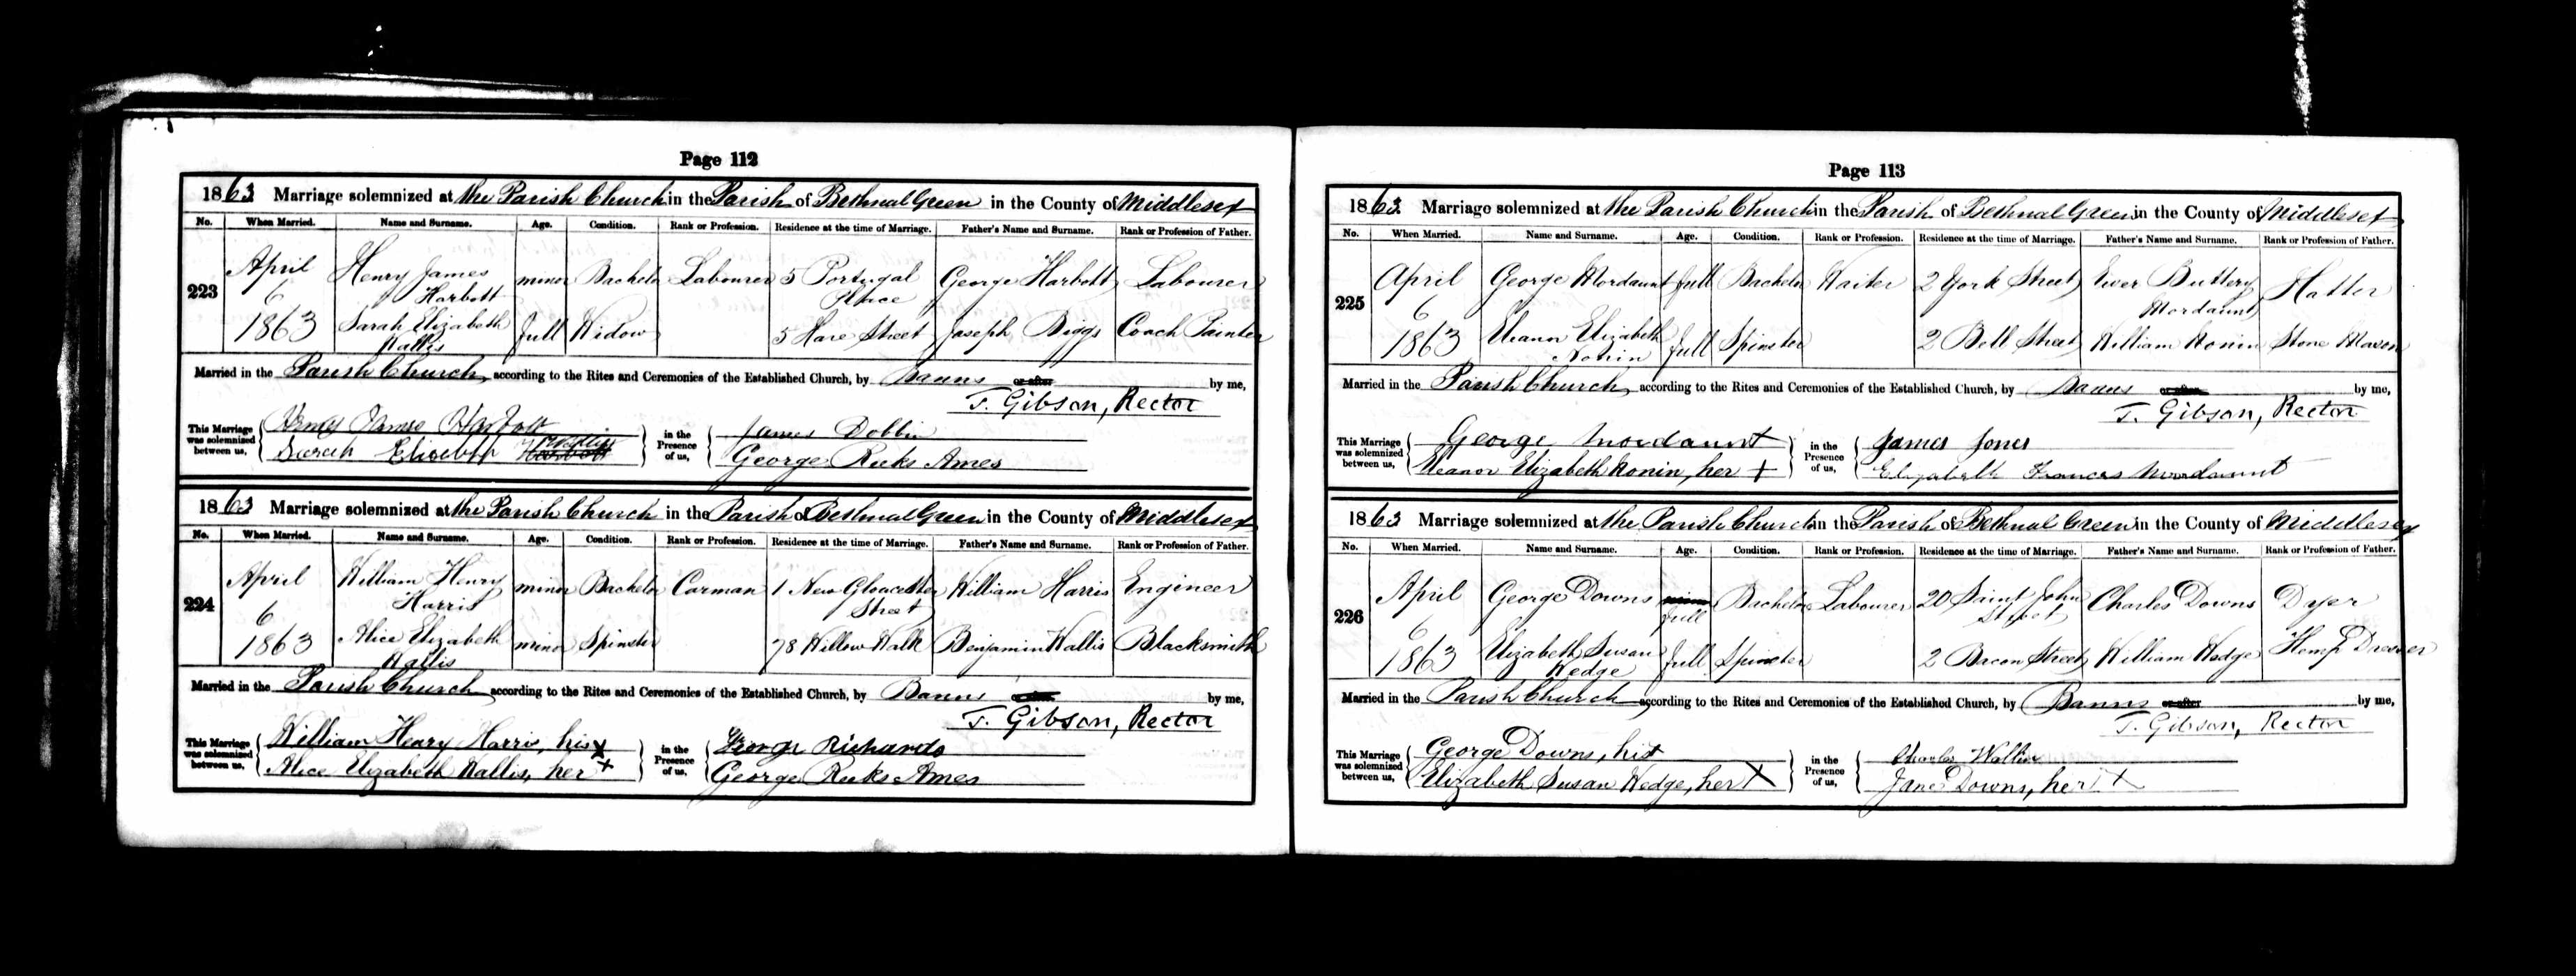 Page 112
1863 Marriage solemnized at the Parish Church in the Parish of Bethnal Green in the County of Middlesex
No. When Married. Name and Surname. Age. Condition. Rank or Profession. Residence at the time of Marriage. Father's Name and Surname. Rank or Profession of Father.
223 April 6 1863 Henry James Harbott minor Bachelor Labourer 5 Portugal Place George Harbott Labourer
Sarah Elizabeth Wallis full Widow 5 Hare Street Joseph Biggs Coach Painter
Married in the Parish Church according to the Rites and Ceremonies of the Established Church, by Banns or after by me,
T. Gibson, Rector
This Marriage was solemnized between us, Henry James Harbott in the Presence of us, James Dobbin
Sarah Elizabeth Wallis George Ruks Ames
1863 Marriage solemnized at the Parish Church in the Parish of Bethnal Green in the County of Middlesex
No. When Married. Name and Surname. Age. Condition. Rank or Profession. Residence at the time of Marriage. Father's Name and Surname. Rank or Profession of Father.
224 April 6 1863 William Henry Harris minor Bachelor Carman 1 New Gloucester Street William Harris Engineer
Alice Elizabeth Wallis minor Spinster 78 Willow Walk Benjamin Wallis Blacksmith
Married in the Parish Church according to the Rites and Ceremonies of the Established Church, by Banns or after by me,
T. Gibson, Rector
This Marriage was solemnized between us, William Henry Harris, his x in the Presence of us, George Richards
Alice Elizabeth Wallis, her + George Ruks Ames
Page 113
1863 Marriage solemnized at the Parish Church in the Parish of Bethnal Green in the County of Middlesex
No. When Married. Name and Surname. Age. Condition. Rank or Profession. Residence at the time of Marriage. Father's Name and Surname. Rank or Profession of Father.
225 April 6 1863 George Mordaunt full Bachelor Waiter 2 York Street Buttery Mordaunt Hatter
Eleanor Elizabeth Ronin full Spinster 2 Bell Street William Ronin Stone Mason
Married in the Parish Church according to the Rites and Ceremonies of the Established Church, by Banns or after by me,
T. Gibson, Rector
This Marriage was solemnized between us, George Mordaunt in the Presence of us, James Jones
Eleanor Elizabeth Ronin, her + Elizabeth Frances Mordaunt
1863 Marriage solemnized at the Parish Church in the Parish of Bethnal Green in the County of Middlesex
No. When Married. Name and Surname. Age. Condition. Rank or Profession. Residence at the time of Marriage. Father's Name and Surname. Rank or Profession of Father.
226 April 6 1863 George Downs minor full Bachelor Labourer 20 Saint John Street Charles Downs Dyer
Elizabeth Susan Wedge full Spinster 2 Bacon Street William Wedge Hemp Dresser
Married in the Parish Church according to the Rites and Ceremonies of the Established Church, by Banns or after by me,
T. Gibson, Rector
This Marriage was solemnized between us, George Downs, his x in the Presence of us, Charles Wallis
Elizabeth Susan Wedge, her X Jane Downs, her X